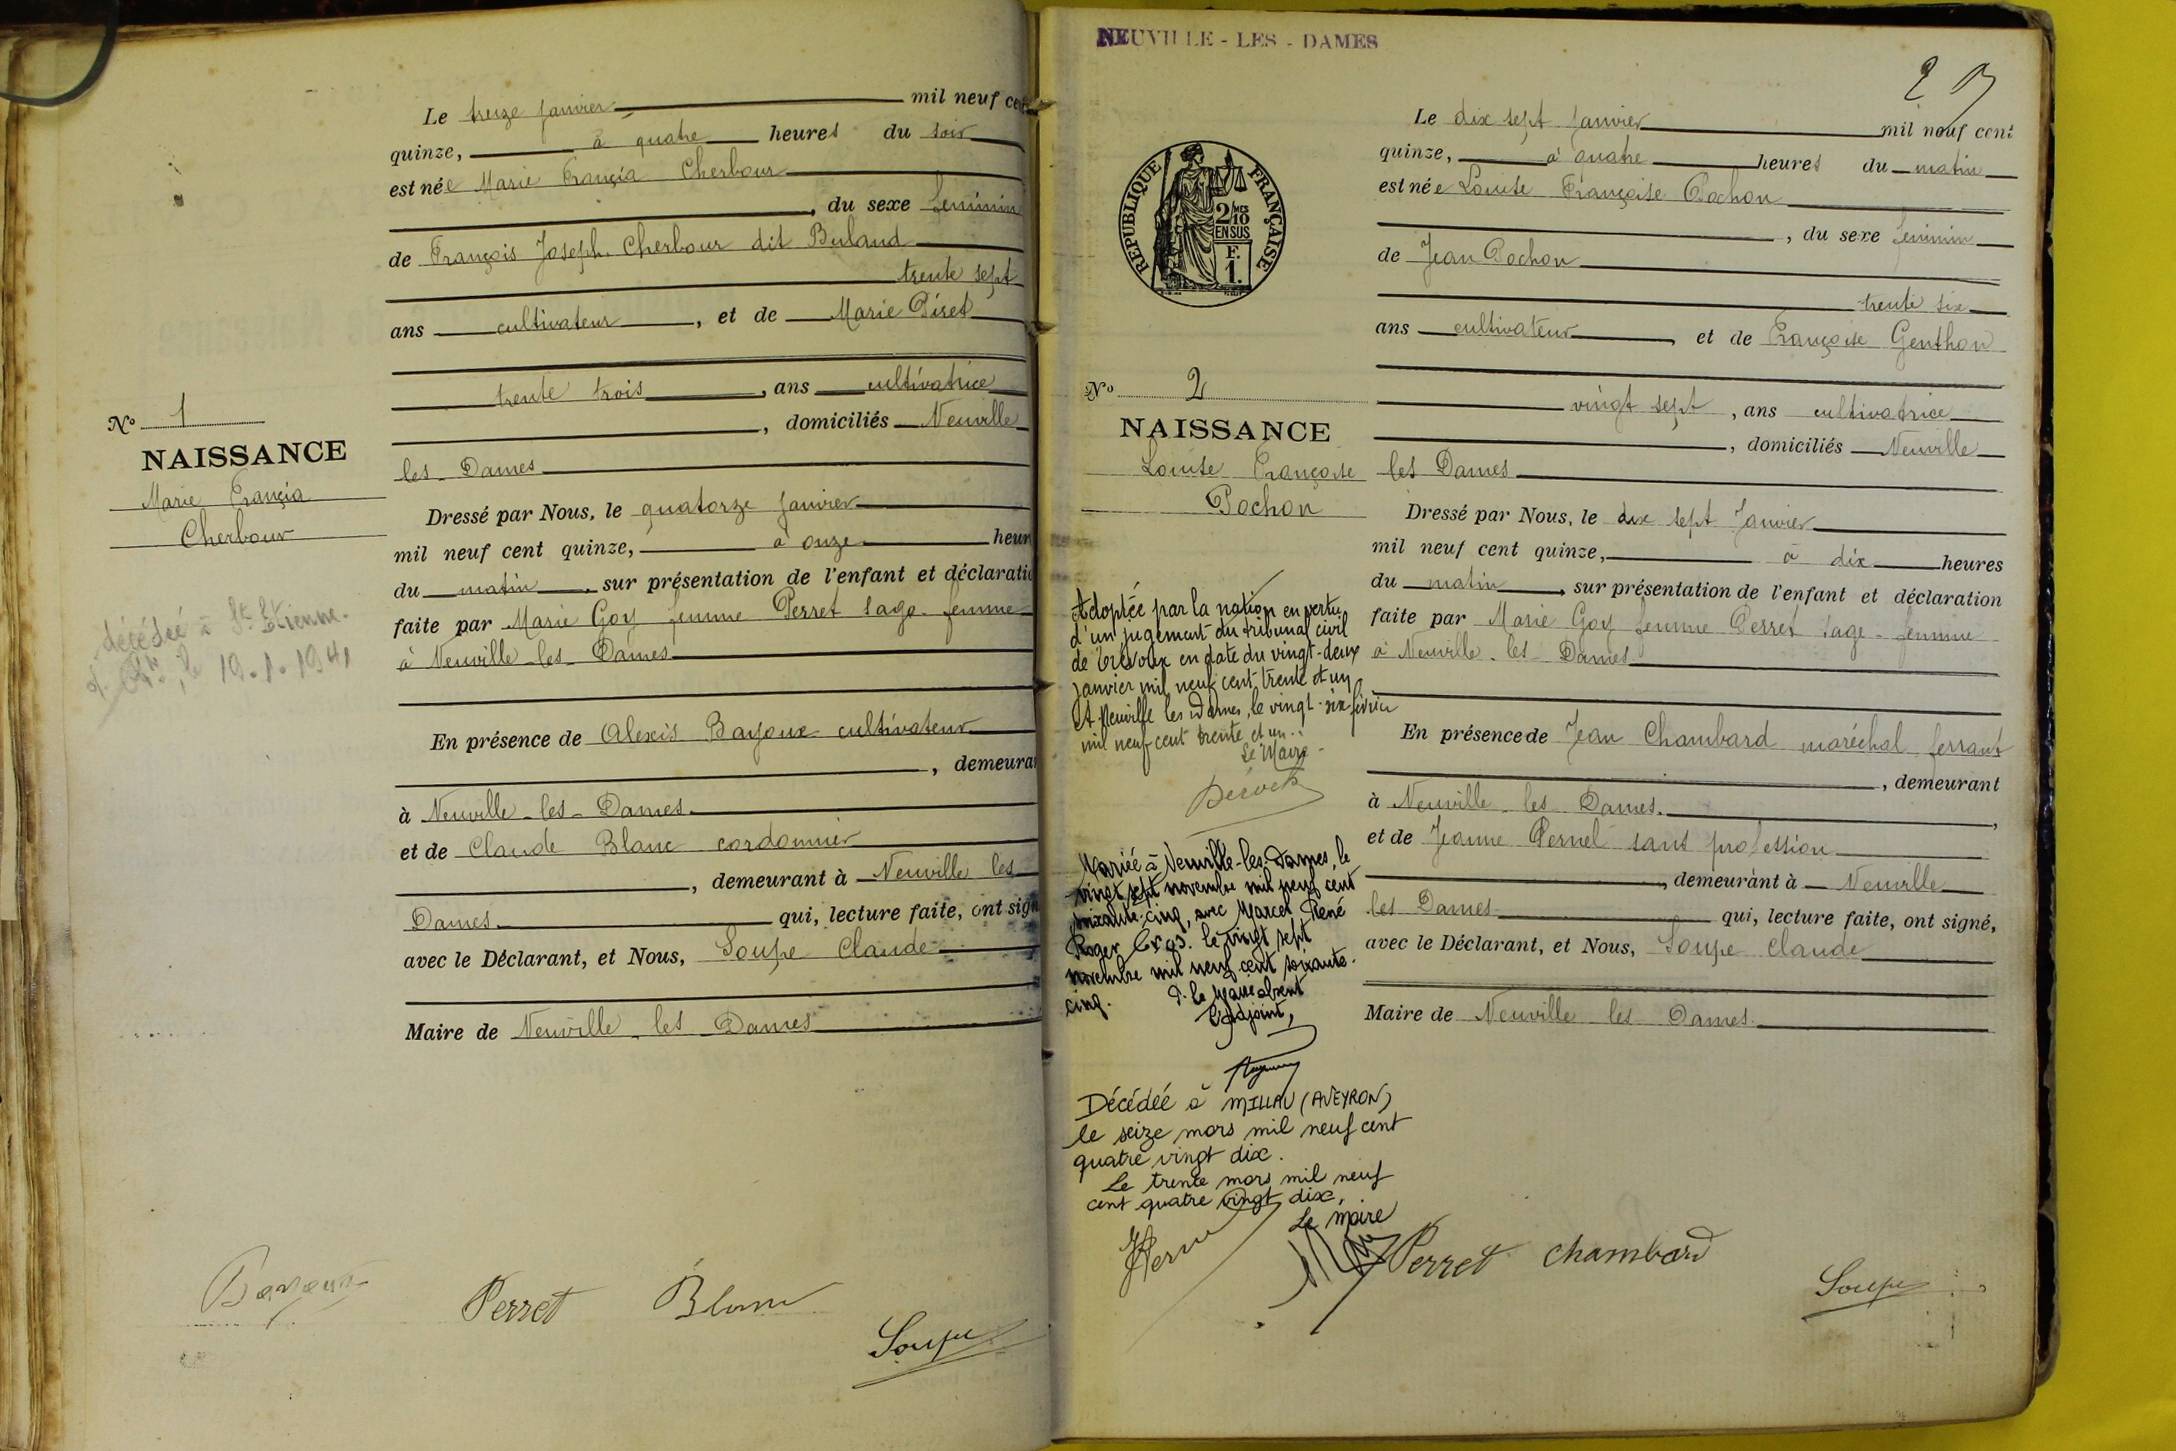 Le treize janvier mil neuf cent
quinze, à quatre heures du soir
est née Marie Françia Cherbour
, du sexe feminin
de François Joseph Cherbour dit Buland
trente sept
ans cultivateur, et de Marie Piset
trente trois, ans cultivatrice
, domiciliés Neuville
les Dames
Dressé par Nous, le quatorze janvier
mil neuf cent quinze, à onze heur
du matin, sur présentation de l'enfant et déclaratio
faite par Marie Goy femme Perret sage-femme
à Neuville-les-Dames
En présence de Alexis Bayoux cultivateur
, demeuran
à Neuville-les-Dames
et de Claude Blanc cordonnier
, demeurant à Neuville les
Dames qui, lecture faite, ont sign
avec le Déclarant, et Nous, Soupe Claude
Maire de Neuville les Dames
No 1
NAISSANCE
Marie Françia
Cherbour
décédée à St Etienne
le 19.1.1941
Perret Blanc
Soupe
NEUVILLE-LES-DAMES
2
RÉPUBLIQUE FRANÇAISE
2/10 MES
EN SUS
F.
1.
Le dix sept janvier mil neuf cent
quinze, à quatre heures du matin
est née Louise Françoise Pochon
, du sexe feminin
de Jean Pochon
trente six
ans cultivateur, et de Françoise Genthon
vingt sept, ans cultivatrice
, domiciliés Neuville
les Dames
Dressé par Nous, le dix sept Janvier
mil neuf cent quinze, à dix heures
du matin, sur présentation de l'enfant et déclaration
faite par Marie Goy femme Perret sage-femme
à Neuville-les-Dames
En présence de Jean Chambard maréchal ferrant
, demeurant
à Neuville-les-Dames,
et de Jeanne Pernel sans profession
, demeurant à Neuville
les Dames qui, lecture faite, ont signé,
avec le Déclarant, et Nous, Soupe Claude
Maire de Neuville les Dames
No 2
NAISSANCE
Louise Françoise
Pochon
Adoptée par la nation en vertu
d'un jugement du tribunal civil
de Trévoux en date du vingt-deux
janvier mil neuf cent trente et un
A Neuville les Dames, le vingt-six février
mil neuf cent trente et un.
Le Maire
Mariée à Neuville-les-Dames, le
vingt sept novembre mil neuf cent
soixante-cinq, avec Marcel René
Roger Cros. le vingt sept
novembre mil neuf cent soixante-
cinq.
P. le Maire absent
L'adjoint,
Décédée à MILLAU (AVEYRON)
le seize mars mil neuf cent
quatre vingt dix.
Le trente mars mil neuf
cent quatre vingt dix,
Le maire
Perret Chambard
Soupe